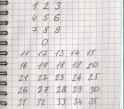 1 2 3
4 5 6
7 8 9
0
11 12 13 14 15
16 17 18 19 20
21 22 23 24 25
26 27 28 29 30
31 32 33 34 35